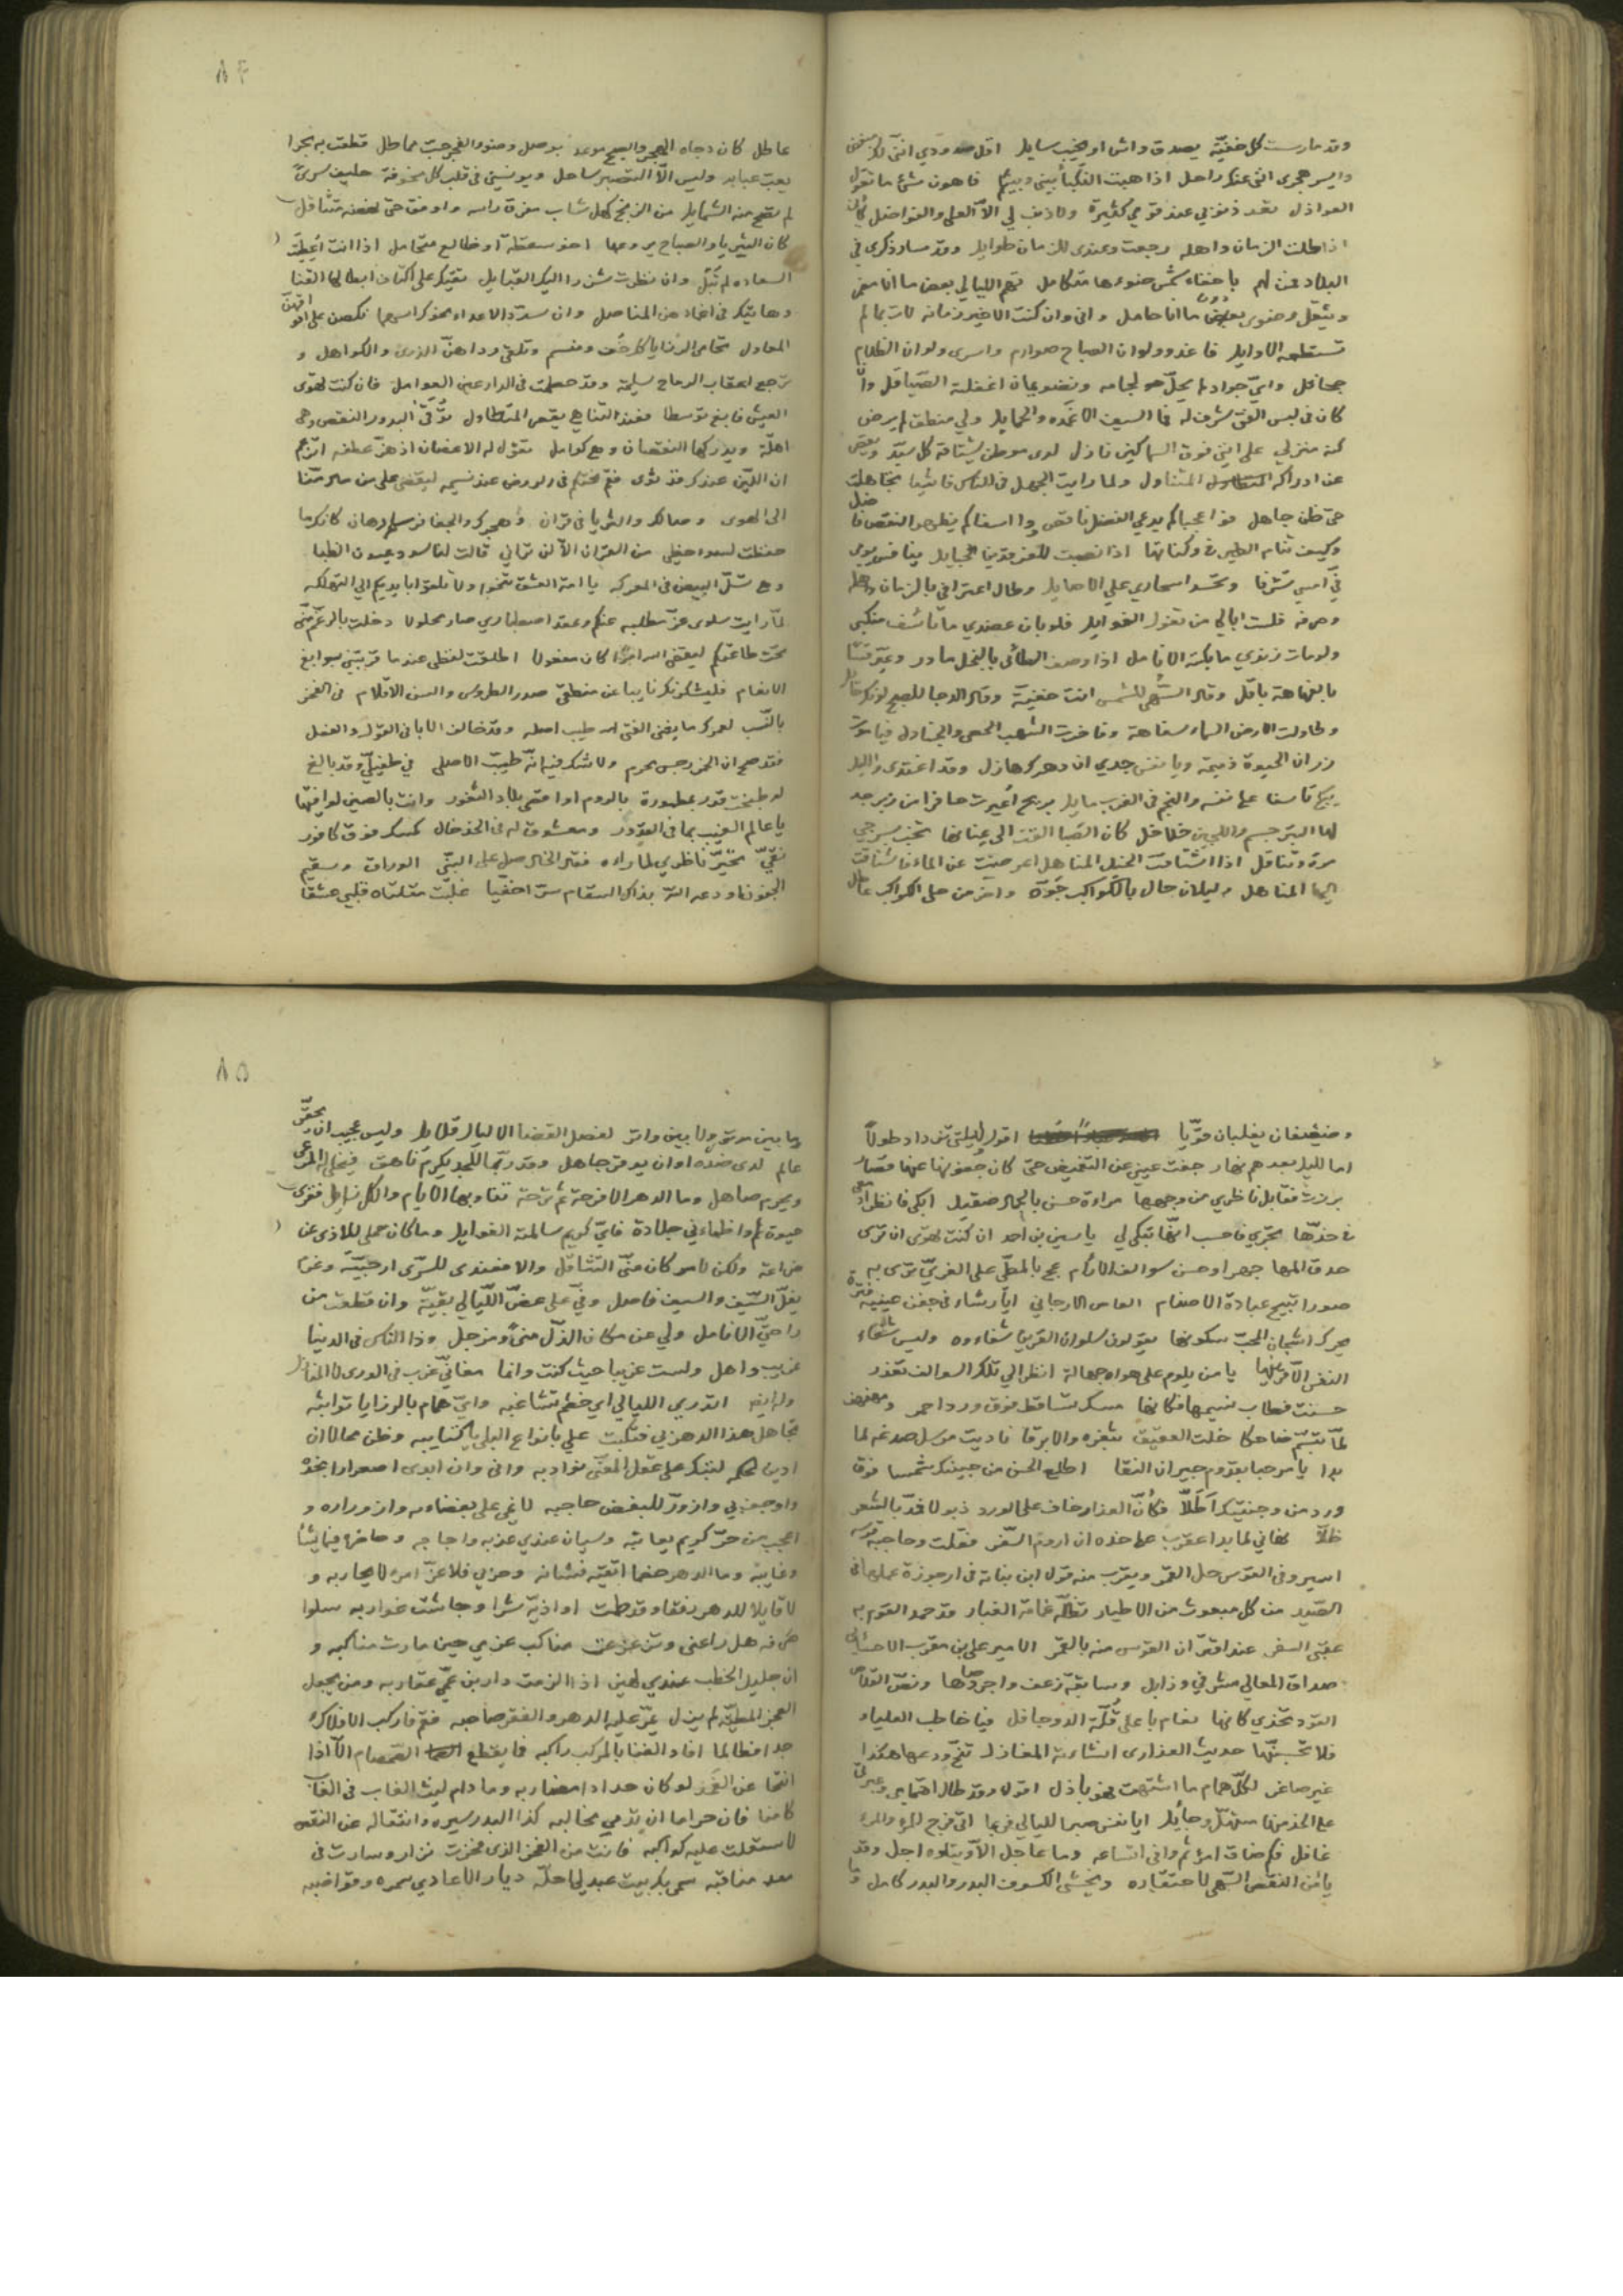 وقد مارست كل خفيّة يصدق واش او يخيب سايل اقل صدودي اننى لك مبغض
وايسر هجرى اننى عنك راحل اذا هبت النكبا بيني وبينكم فاهون شئ ما تقول
العواذل تعد ذنوبي عند قومي كثيرة ولا ذنب لي الا العلى والفواضل كأني
اذا طلت الزمان واهله رجعت وعندى للزمان طوايل وقد سار ذكرى في
البلاد فمن لهم باخفاء شمس ضوءها متكامل تهم الليالي بعض ما انا مضمر
ويثقل رضوى بعض ما انا حامل وانى وان كنت الاخير زمانه لات بما لم
تستطعه الاوايل فاغدو ولو ان الصباح صوارم واسرى ولو ان الظلام
جحافل واني جواد لم يحل لجامه ونضو يمان اغفلته الصياقل وان
كان في لبس الفتى شرف له فما السيف الا غمده والحمايل ولي منطق لم يرض
كنه منزلي على انني فوق السماكين نازل لدى موطن يشتاقه كل سيد ويقصر
عن ادراكه المتناول ولما رايت الجهل في الناس فاشيا تجاهلت
حتى ظن جاهل فوا عجبا كم يدعي الفضل ناقص ووا اسفا كم يظهر النقص فاضل
وكيف تنام الطير في وكناتها اذا نصبت للفرقدين الحبايل ينافس يومى
في امسي تشرفا وتحسد اسحاري علي الاصايل وطال اعترافي بالزمان
وصرفه فلست ابالي من تغول الغوايل فلو بان عضدي ما تأسف منكبي
ولو مات زندي ما بكته الانامل اذا وصف الطائى بالبخل مادر وعير قسا
بالفهاهة باقل وقال السهى للشمس انت خفية وقال الدجا للصبح لونك حايل
وطاولت الارض السماء سفاهة وفاخرت الشهب الحصى والجنادل فيا موت
زر ان الحيوة ذميمة ويا نفس جدي ان دهرك هازل وقد اغتدى والليل
يبكي تاسفا على نفسه والنجم في الغرب مايل بريح اعيرت حافرا من زبرجد
لها التبر جسم واللجين خلاخل كان الصبا القت الى عنانها تخب بسرجي
مرة وتناقل اذا اشتاقت الخيل المناهل اعرضت عن الماء فاشتاقت
اليها المناهل وليلان حال بالكواكب جوزه واخر من حلى الكواكب عاطل
٨٤
عاطل كان دجاه الهجر والصبح موعد بوصل وضوء الفجر حب مماطل قطعت به بحرا
يعب عبابه وليس الا التصبر ساحل ويونسني في قلب كل مخوفة حليف سرى
لم تصح منه الشمايل من الزنج كهل شاب مفرق راسه واوثق حتى نهضه متثاقل
كان الثريا والصباح يروعها اخو سقطة او ظالع متحامل اذا انت اعطيت
السعاده لم تبل وان نظرت شزرا اليك القبايل تقتك على اكتاف ابطالها القنا
وهابتك في اغمادهن المناصل وان سدد الاعداء نحوك اسهما نكصن على افواقهن
المعابل تحامى الرزايا كل خف ومنسم وتلقى رداهن الذرى والكواهل و
ترجع اعقاب الرماح سليمة وقد حطمت في الدارعين العوامل فان كنت تهوى
العيش فابغ توسطا فعند التناهي يقصر المتطاول توقى البدور النقص وهي
اهلة ويدركها النقصان وهي كوامل تقول له الاغصان اذ هز عطفه اتزعم
ان اللين عندك قد ثوى فقم نحتكم في الروض عند نسيمه ليقضى على من مال منا
الى الهوى وصالك والثريا في قران وهجرك والجفا فرسا رهان كانك ما
حفظت لسوء حظي من القران الا لن تراني قالت لنا سود عيون الظبا
وهي تسل البيض في المعركه يا امة العشق تنحوا ولا تلقوا بايديكم الى التهلكه
لما رايت سلوى عز مطلبه عنكم وعقد اصطباري صار محلولا دخلت بالرغم منى
تحت طاعتكم ليقضى الله امرا كان مفعولا اطلقت لفظى عندما قربتنى بسوابغ
الانعام فليشكرنك نايبا عن منطقى صدر الطروس والسن الاقلام في الفخر
بالنسب لعمرك ما يغنى الفتى طيب اصله وقد خالف الابا في القول والفعل
فقد صح ان الخمر رجس محرم ولا شك فيه انه طيب الاصل في طفيلي وقد بالغ
لو طبخت قدر بمطمورة بالروم او اقصى بلاد الثغور وانت بالصين لوافيتها
يا عالم الغيب بما في القدور ومعشوق له في الخد خال كمسك فوق كافور
نقي تحير ناظري لما راه فقال الخال صل على النبي الوراق وسقيم
الجفون اودعه الله بذاك السقام سرا خفيا غلبت مقلتاه قلبي عشقا
وضعيفان يغلبان قويا اقول لليلتي تزداد طولا
اما لليل بعدهم نهار جفت عيني عن التغميض حتى كان جفونها عنها قصار
برزت فقابل ناظري من وجهها مراءة حسن بالجمال صقيل ابكى فانظر ادمعى
في خدها تجري فاحسب انها تبكى لي ياسين بن احمد ان كنت تهوى ان ترى
حدق المها جهرا وحسن سوالف الارام عج بالمطي على الغري ترى به
صورا تبيح عبادة الاصنام العباس الارجاني ايا رشاء في جفن عينيه فترة
يحرك اشجان المحب سكونها يقولون سلوان القرين شفاءوه وليس شفاء
النفس الا قرينها يا من يلوم على هواه جهالة انظر الي تلك السوالف تعذر
حسنت فطاب نسيمها فكانها مسك تساقط فوق ورد احمر ومهفهف
لما تبسم ضاحكا خلت العقيق بثغره والابرقا ناديت مرسل صدغه لما
بدا يا مرحبا بقدوم جيران النقا اطلع الحسن من جبينك شمسا فوق
ورد من وجنتيك اطلا فكأن العذار خاف على الورد ذبولا فمد بالشعر
ظلا نهاني لما بدا عقرب على خده ان اروم السفر فقلت وحاجبه قوسه
اسير وفي القوس حل القمر ويقرب منه قول ابن نباتة في ارجوزة عملها في
الصيد من كل مبعوث من الاطيار تظله غمامة الغبار قد حمد القوم به
عقبى السفر عند اقتران القوس منه بالقمر الامير على بن مقرب الاحسائي
صداق المعالي مشرفي وذابل وسابقة زعف واجرد صاهل ونص القلاص
القود تحدي كانها نعام باعلى قلة الدو جافل فيا خاطب العلياء
فلا تحسبنها حديث العذارى انشاءته المغازل تنح ودعها هكذا
غير صاغر لكل همام ما اشتهت فهو باذل اقول وقد طال اهتمامي وعبرتي
على الخد منها مستهل وجائل ايا نفس صبرا لليالي فربما اتى فرج للمرء والمرء
غافل فكم ضاق امر ثم وافى اتساعه وما عاجل الا ويتلوه اجل وقد
يأمن النقص السهى لاحتقاره ويخشى الكسوف البدر والبدر كامل وما
٨٥
وما بين موتور ولا بين واتر لفصل القضا الا ليال قلايل وليس عجيب ان يحقر
عالم لدى ضده او ان يوقر جاهل وقد ربما للجد يكرم ناهق فيخلى له المرعى
ويحرم صاهل وما الدهر الا فرحة ثم ترحة تناوبها الايام والكل زايل فقوى
ضراعة ولكن لامر كان منى التثاقل والا فعندى للسرى ارحبية وعزم
يفل السيف والسيف فاصل وفي على عض الليالي بقية وان قطعت من
راحتي الانامل ولي عن مكان الذل منى ومزحل وذا الناس في الدنيا
غريب واهل ولست غريبا حيث كنت وانما معاني غرب في الورى لا المنازل
وله ايضا اتدري الليالي اي خصم تشاغبه واي همام بالرزايا تواثبه
تجاهل هذا الدهر بي فتكبت علي بانواع البلى كتايبه وظن محالا ان
ادين لحكمه لتبك على عقل المعنى نوادبه وانى وان ابدى اصعرارا بخده
واوجف بي وازور للبغض حاجبه لاغضى على بغضاءه وازوراره و
اعجب من حر كريم يعاتبه وسيان عندي عذبه واجاجه وحاضره فيما يشا
وغايبه وما الدهر خصما اتقيه فشانه وحربي فلا عز امرء لا يحاربه و
لا قايلا للدهر رفقا وقد طمت اواذيه شرا وجاشت غواربه سلوا
صرفه هل راعنى وتزعزعت مناكب عزمي حين مارت مناكبه و
ان جليل الخطب عندي لهين اذا الزمت دار بن غمي عقاربه ومن يجعل
العجز المطية لم يزل يمر عليه الدهر والفقر صاحبه فقم فاركب الاهلاك
جدا فطالما افاد الغنا بالمركب راكبه فما يقطع الصمصام الا اذا
انتحا عن الغمد لو كان حدادا مضاربه وما دام ليث الغاب في الغاب
كامنا فان حراما ان تدمي مخالبه كذا البدر سيره وانتقاله عن النقص
لاستعلت عليه كواكبه فانت من الفخر الذى فخرت نزار وسارت في
معد مناقبه سمى بك بيت عبدلى احله ديار الاعادي سمره وقواضبه